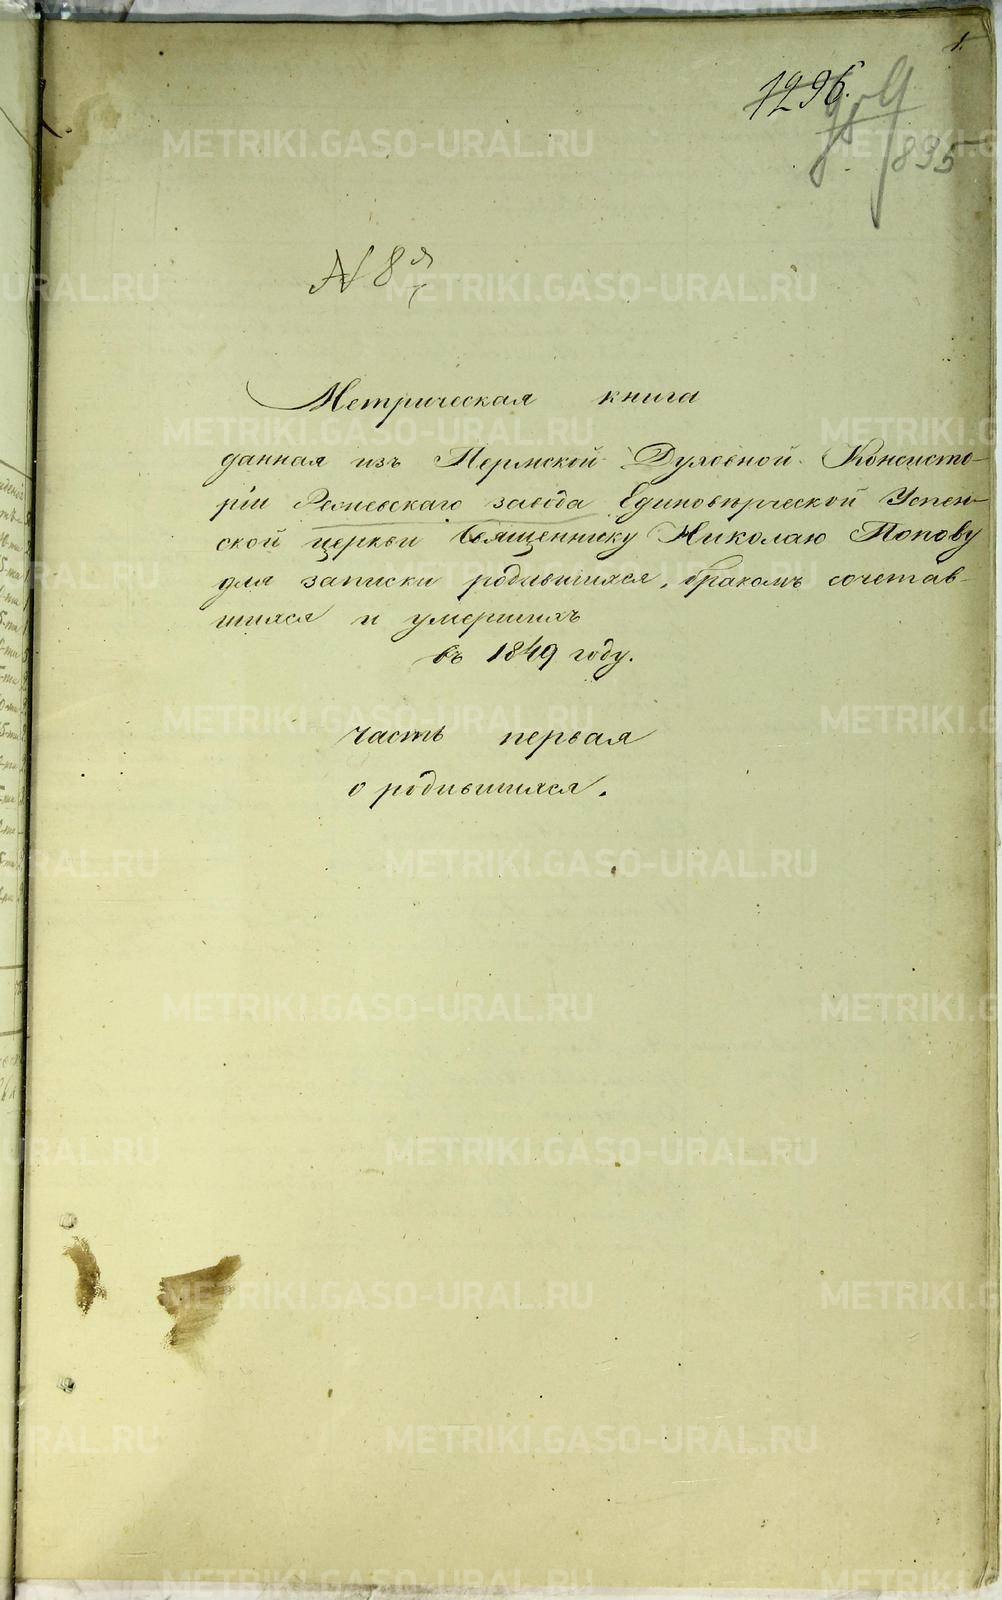 1.
1296.
895
N 8й
Метрическая книга
данная изъ Пермской Духовной Консисто-
рiи Режевскаго завода Единовѣрческой Успен-
ской церкви Священнику Николаю Попову
для записки родившихся, бракомъ сочетав-
шихся и умершихъ
въ 1849 году.
часть первая
о родившихся.
METRIKI.GASO-URAL.RU